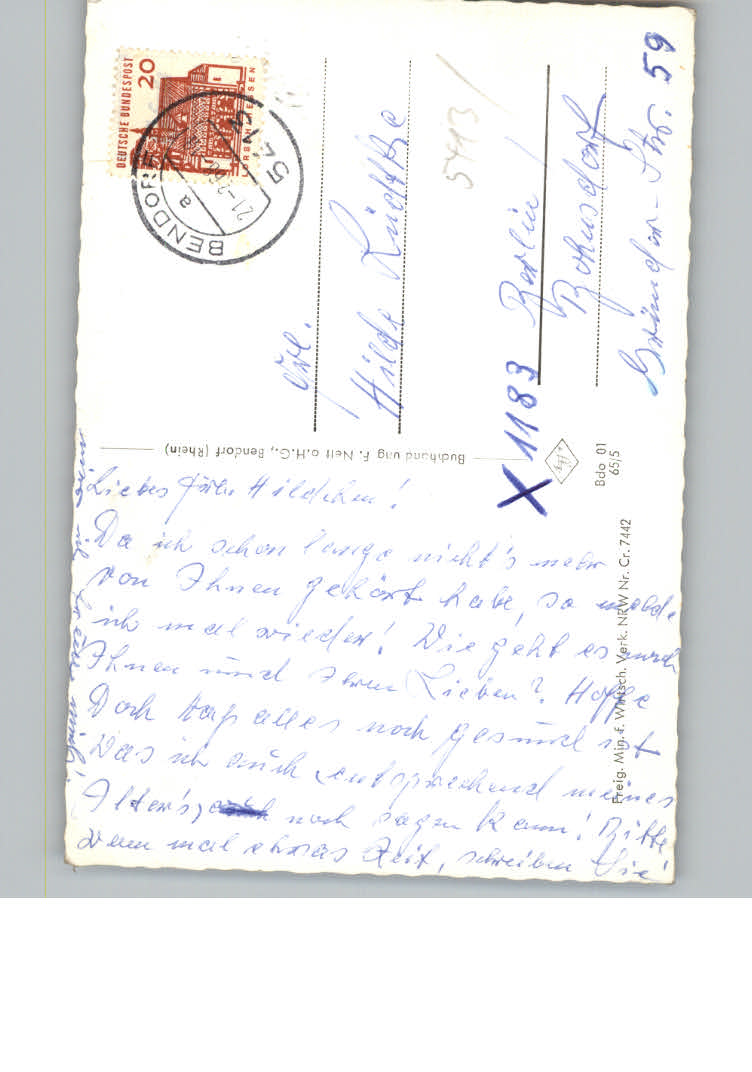 Liebes Frln Hildchen!
Da ich schon lange nicht's mehr
von Ihnen gehört habe, so melde
ich mal wieder! Wie geht es noch
Ihnen und Ihren Lieben? Hoffe
Doch das alles noch gesund ist
Das ich auch entsprechend meines
Alter's, noch sagen kann! Bitte,
wenn mal etwas Zeit, schreiben Sie
DEUTSCHE BUNDESPOST
20
BENDORF
a
541 75
Frl.
Hilde
X 1183 Berlin
Bohnsdorf
Gründer-Str. 59
5413
Buchhand ung F. Nett o.H.G., Bendorf (Rhein)
Bdo 01
65/5
Freig. Min. f. Wirtsch. Verk. NRW Nr. Cr. 7442